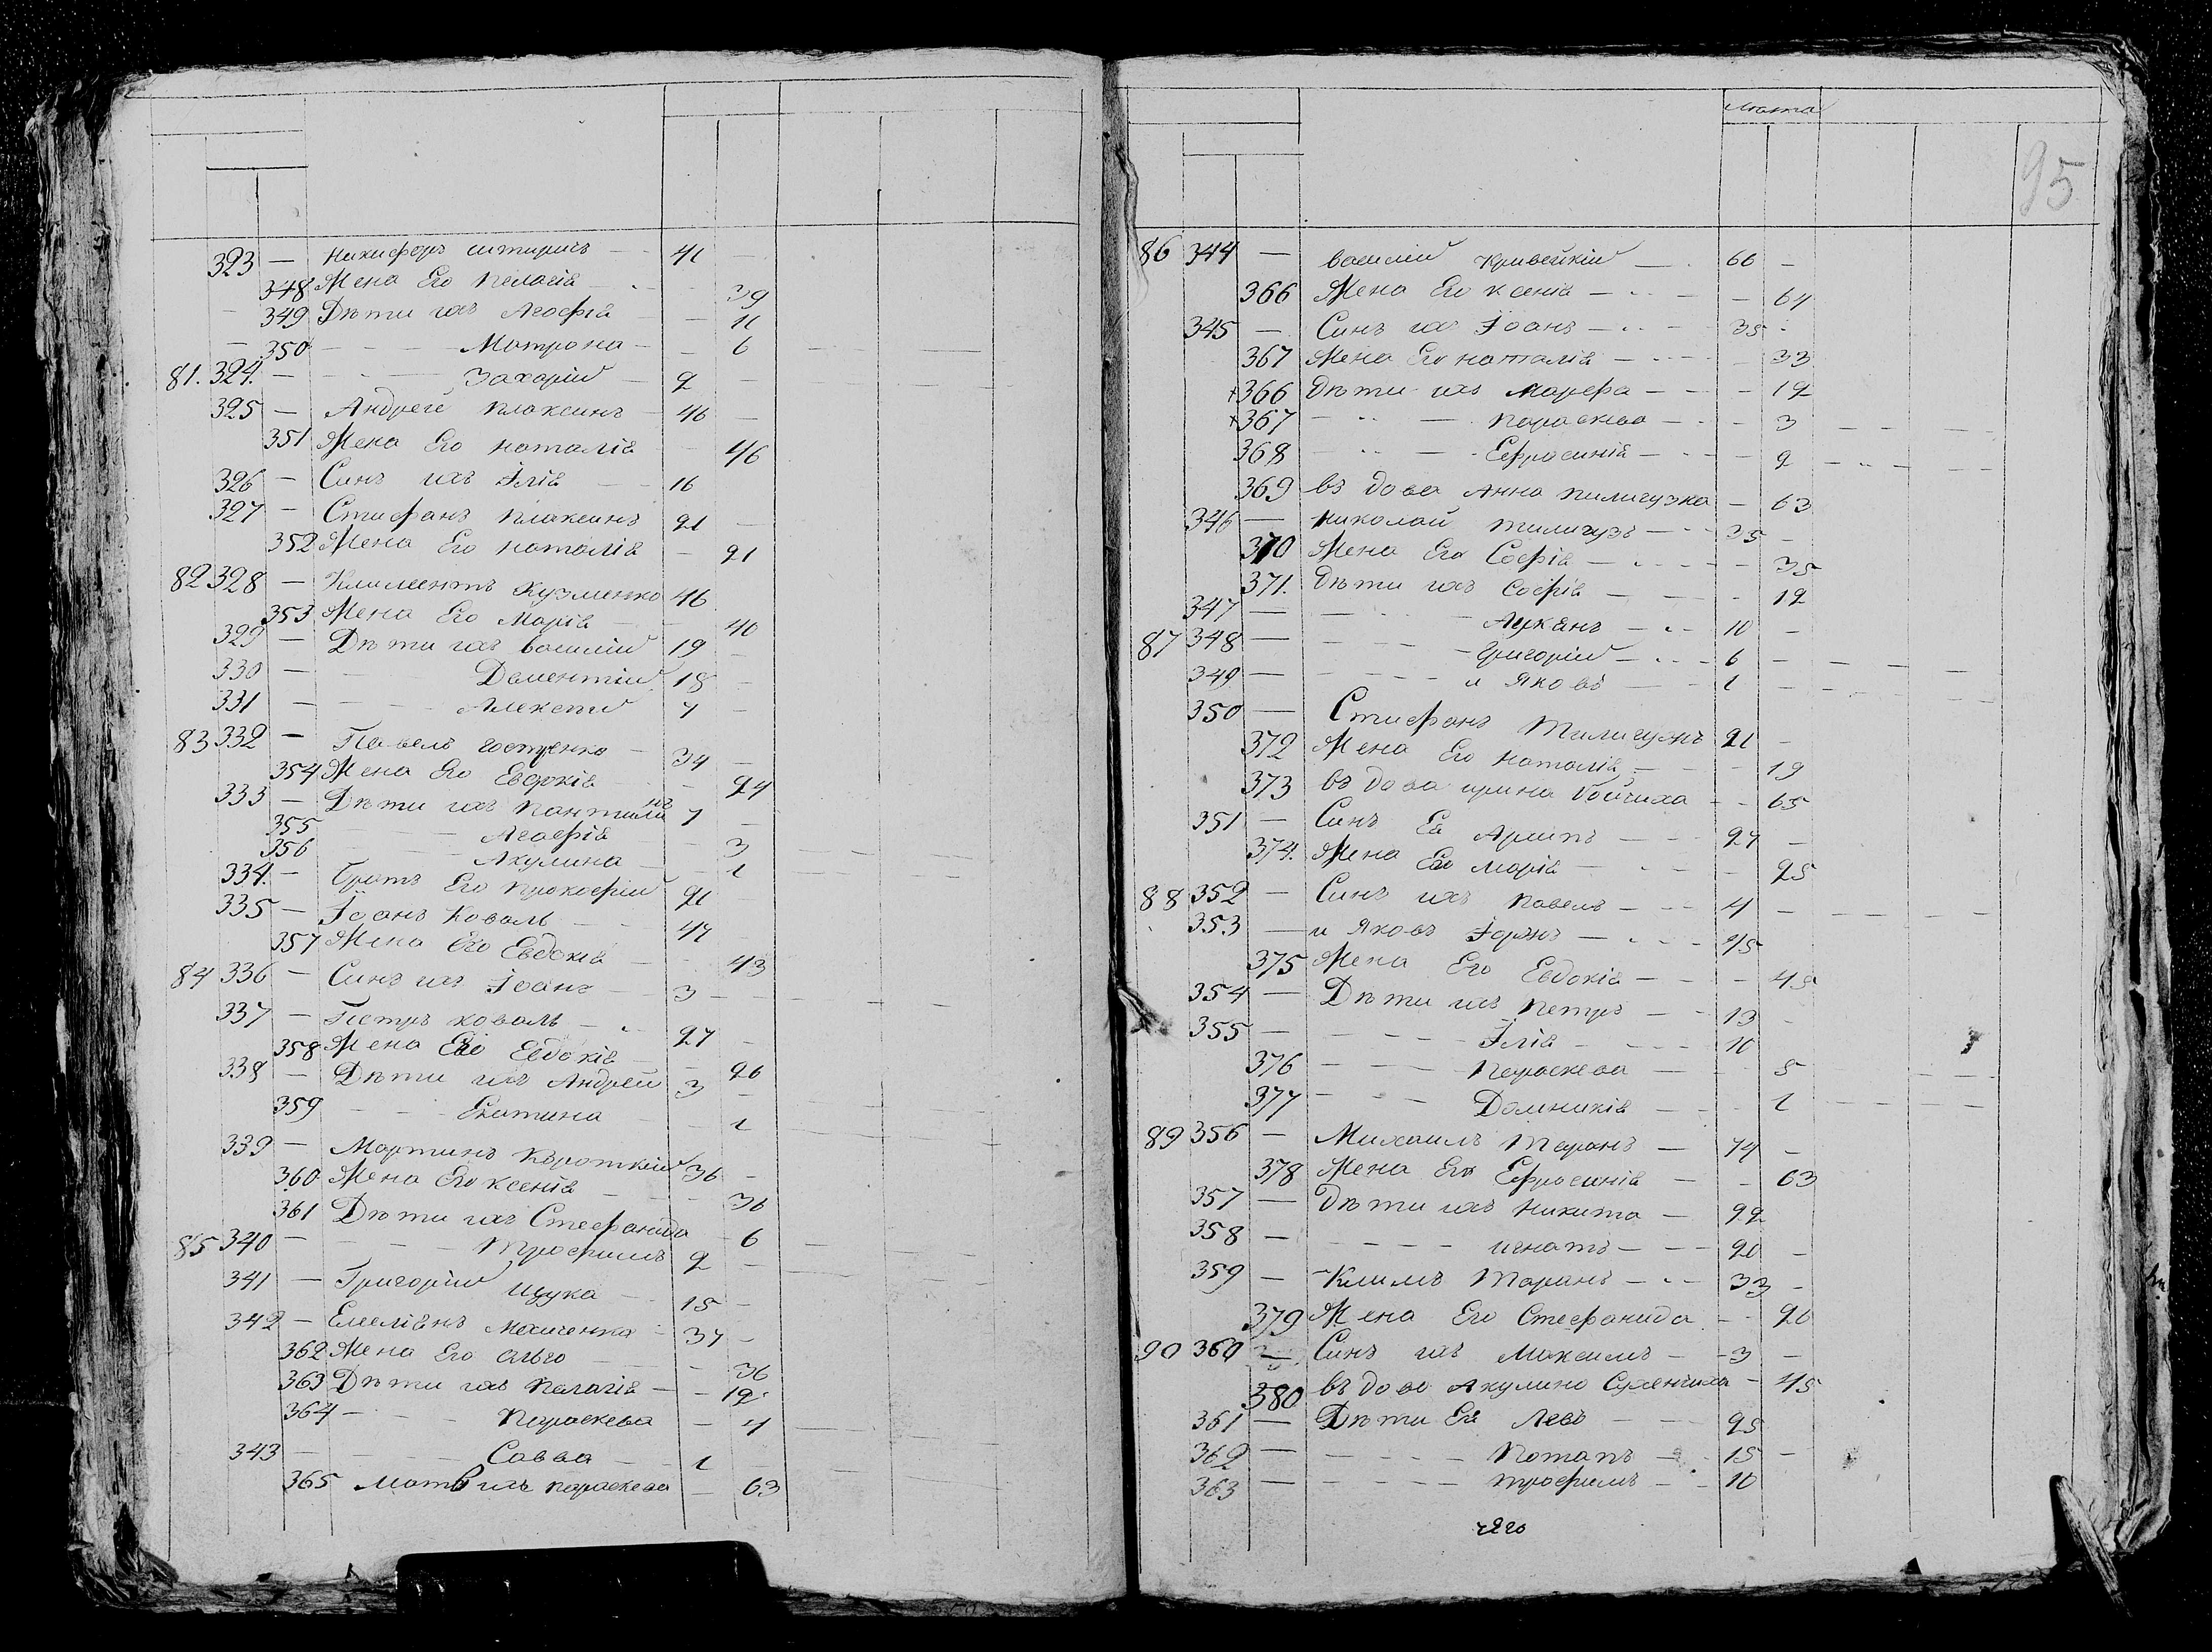 323 — Никифоръ 41 —
348 Жена Его Пелагія — 39
— 349 Дѣти ихъ Агафія — 11
— 350 — Матрона — 6
81. 324. — Захарій — 2 —
325 — Андрей Плаксинъ — 46 —
351 Жена Его Наталія — 46
326 — Синъ ихъ Ілія — 16
327 — Стефанъ Плаксинъ 21 —
352 Жена Его Наталія — 21
82 328 — Климентъ Кузменко 46
353 Жена Его Марія — 40
329 — Дѣти ихъ Василій 19 —
330 — Доментій 18 —
331 — Алексѣй 7 —
83 332 — Павелъ 34 —
354 Жена Его Евдокія — 24
333 — Дѣти ихъ 7 —
355 Агафія — 3
356 Акулина — 1
334. — Братъ Его Прокофій 21
335 — Іоанъ Коваль — 47
357 Жена Его Евдокія — 43
84 336 — Синъ ихъ Іоанъ — 3 —
337 — Петръ Коваль — 27 —
358 Жена Его Евдокія — 26
338 — Дѣти ихъ Андрей 3 —
359 — Екатина — 1
339 — Мартинъ Короткій 36 —
360 Жена Его Ксенія — 36
361 Дѣти ихъ Стефанида — 6
85 340 — Трофимъ 2 —
341 — Григорій Щука — 15 —
342 — Емеліянъ 37 —
362 Жена Его — 36
363 Дѣти ихъ Пелагія — 12
364 — Параскева — 4
343 — Савва — 1
365 Мать ихъ Параскева — 63
Лѣта
95
86 344 — Василій 66 —
366 Жена Его Ксенія — 64
345 — Синъ ихъ Іоанъ — 35
367 Жена Его Наталія — 33
+366 Дѣти ихъ Марфа — 12
+367 — Параскева — 3
368 — Ефросинія — 2
369 въ дова Анна — 63
346 — Николай — 35 —
370 Жена Его Софія — 35
371. Дѣти ихъ Софія — 12
347 — 10 —
87 348 — Григорій — 6 —
349 — и Яковъ — 1 —
350 — Стефанъ 21 —
372 Жена Его Наталія — 19
373 въ дова Ирина — 65
351 — Синъ Ея — 27 —
374. Жена Его Марія — 25
88 352 — Синъ ихъ Павелъ — 4 —
353 — и Яковъ 45
375 Жена Его Евдокія — 45
354 — Дѣти ихъ Петръ — 13 —
355 — Ілія — 10
376 — Параскева — 5
377 — Домникія — 1
89 356 — Михаилъ Таранъ — 74 —
378 Жена Его Ефросинія — 63
357 — Дѣти ихъ Никита — 22
358 — Игнатъ — 20 —
359 — Климъ Таранъ — 33 —
379 Жена Его Стефанида — 26
90 360 — Синъ ихъ Максимъ — 3 —
380 въ дова Акулина — 45
361 — Дѣти Ея Левъ — 25
362 — Потапъ — 15 —
363 — Трофимъ — 10